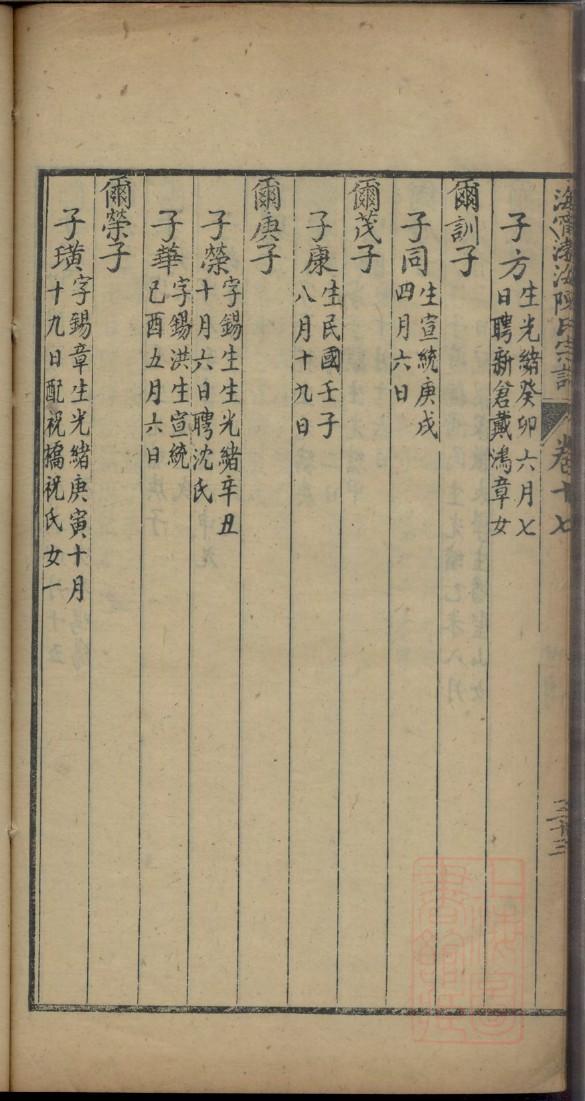 海寧渤海陳氏宗譜 卷十七 三十三
子方 生光緒癸卯六月七
日聘新倉戴鴻章女
爾訓子
子同 生宣統庚戌
四月六日
爾茂子
子康 生民國壬子
八月十九日
爾庚子
子榮 字錫生生光緒辛丑
十月六日聘沈氏
子華 字錫洪生宣統
己酉五月六日
爾榮子
子璜 字錫章生光緒庚寅十月
十九日配祝橋祝氏女一